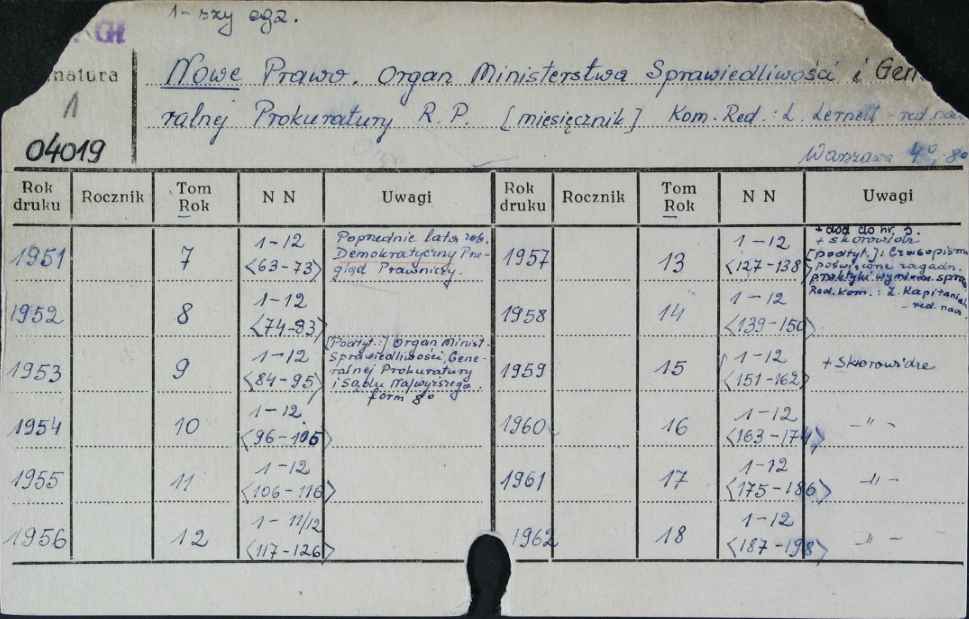 1-szy egz.
natura
1
04019
Nowe Prawo. Organ Ministerstwa Sprawiedliwości i Gen
ralnej Prokuratury R.P. [miesięcznik] Kom. Red.: L. Lernell - red. nacz.
Warszawa 4°, 8°
Rok druku Rocznik Tom Rok N N Uwagi Rok druku Rocznik Tom Rok N N Uwagi
1951 7 1-12 <63-73>
Poprzednie lata zob.
Demokratyczny Prze-
gląd Prawniczy.
1957 13 1-12 <127-138>
+ dod do nr. 5.
+ skorowidz
[podtyt.]: Czasopismo
poświęcone zagadn.
praktyki wymiaru spraw
Red. kom.: Z. Kapitaniak
- red. nacz.
1952 8 1-12 <74-83>
1958 14 1-12 <139-150>
1953 9 1-12 <84-95>
[Podtyt.:] Organ Minist.
Sprawiedliwości, Gene-
ralnej Prokuratury
i Sądu Najwyższego.
form 8°
1959 15 1-12 <151-162> + Skorowidze
1954 10 1-12 <96-105>
1960 16 1-12 <163-174> -"-
1955 11 1-12 <106-116>
1961 17 1-12 <175-186> -"-
1956 12 1-11/12 <117-126>
1962 18 1-12 <187-198> -"-